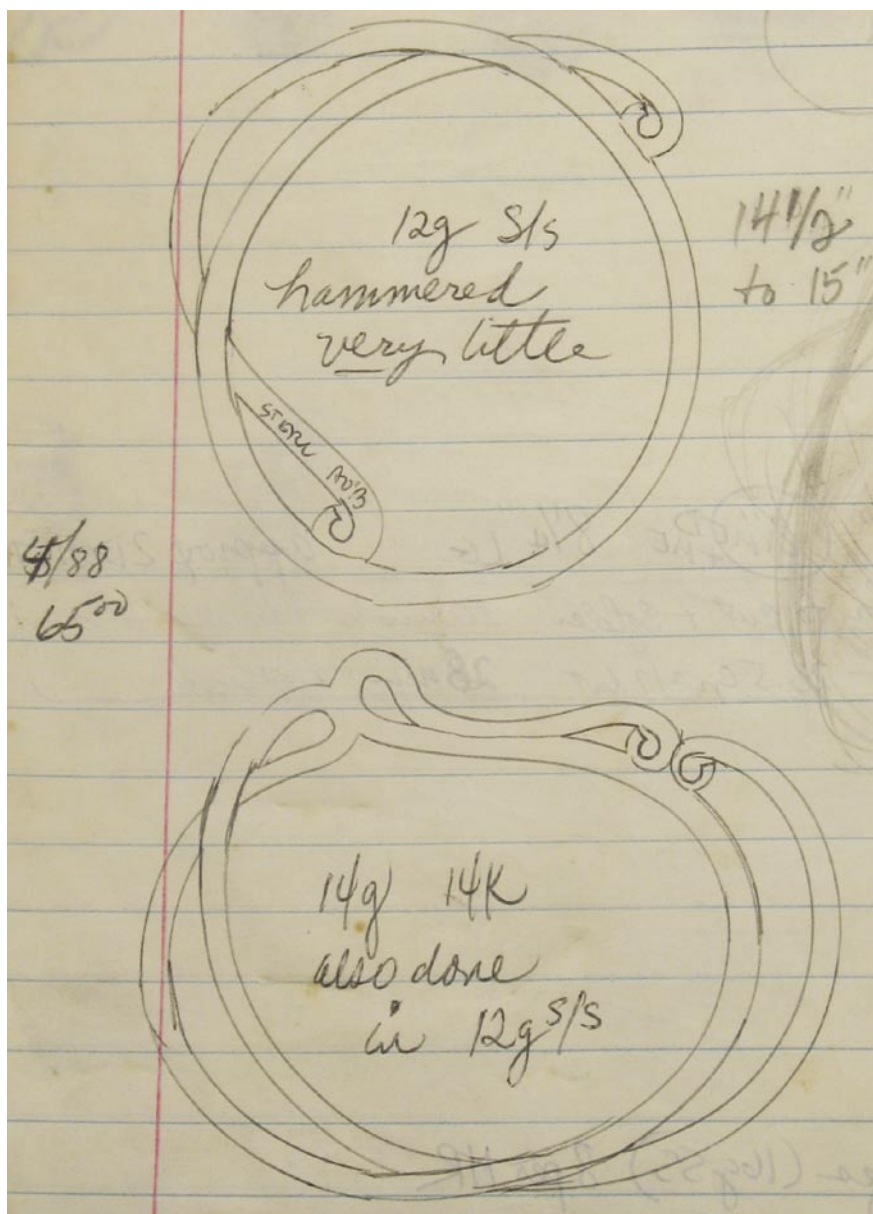 12g S/s
hammered
very little
14 1/2"
to 15"
4/88
65⁰⁰
14g 14K
also done
in 12g S/s